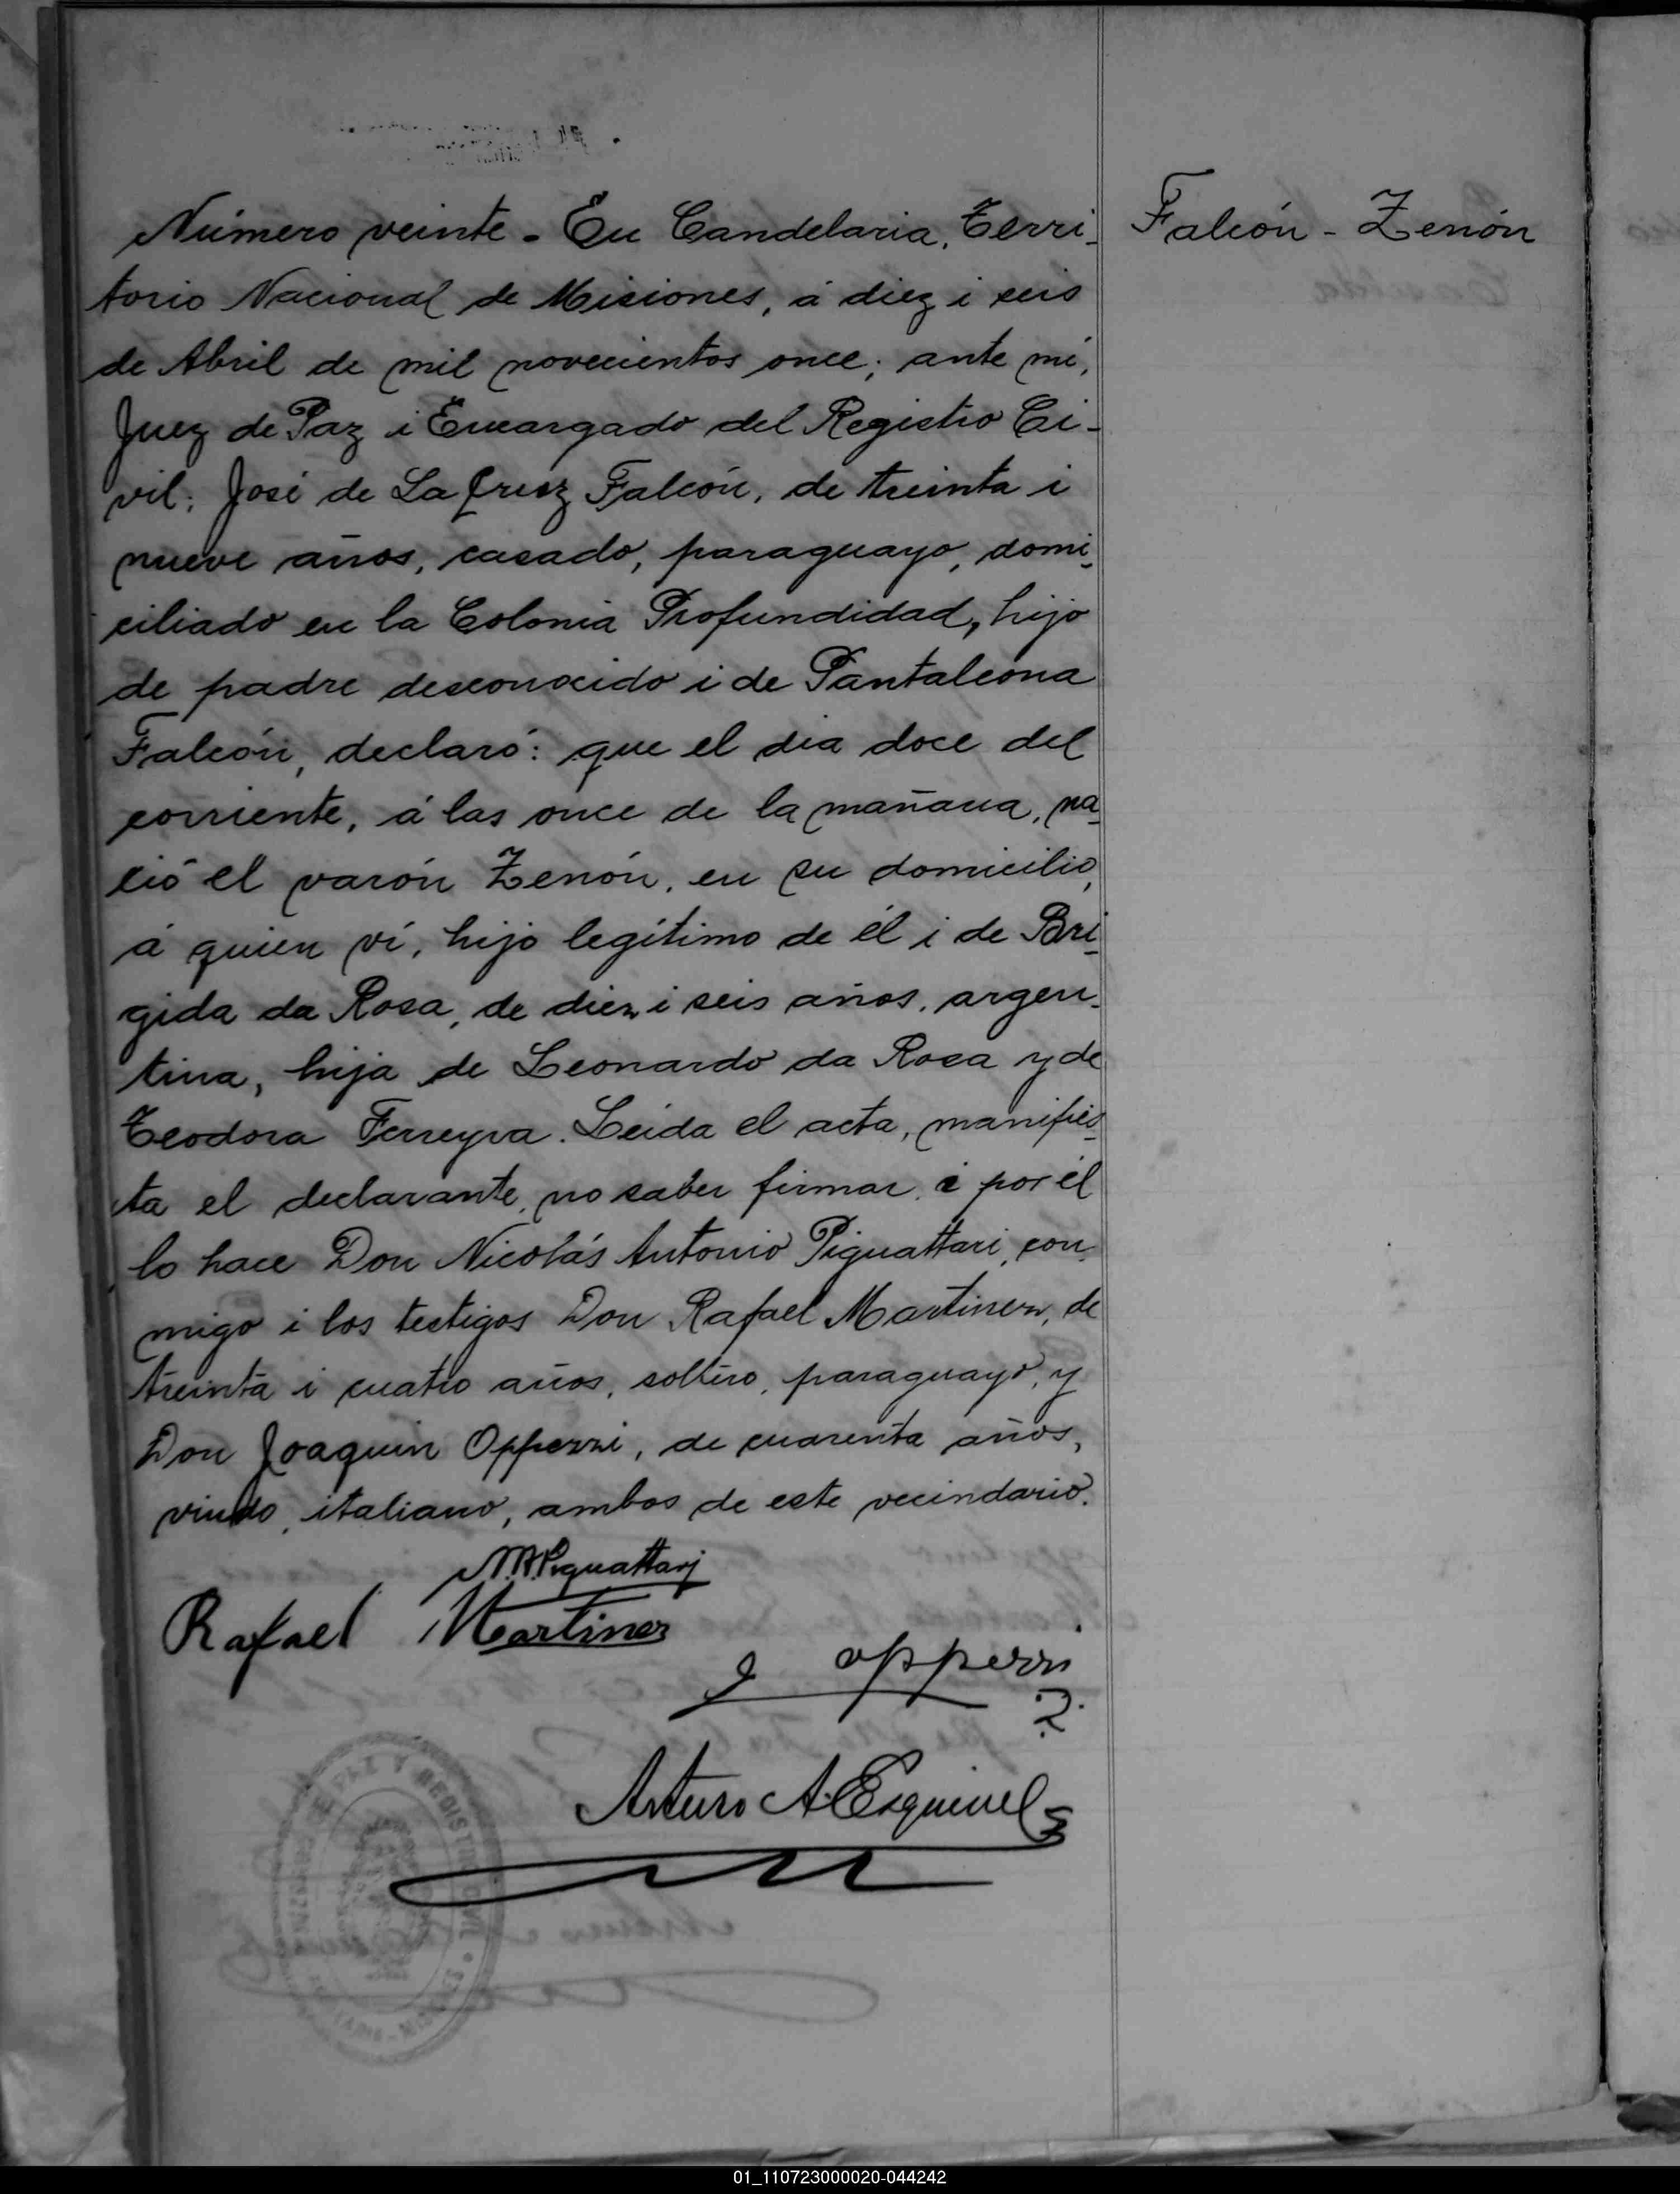 Número veinte - En Candelaria, Terri-
Falcón - Zenón
torio Nacional de Misiones, á diez i seis
de Abril de mil novecientos once; ante mí,
Juez de Paz i Encargado del Registro Ci-
vil; José de La Cruz Falcón, de treinta i
nueve años, casado, paraguayo, domi-
ciliado en la Colonia Profundidad, hijo
de padre desconocido i de Pantaleona
Falcón, declaró: que el día doce del
corriente, á las once de la mañana, na-
ció el varón Zenón, en su domicilio,
á quien ví, hijo legítimo de él i de Bri-
gida da Rosa, de diez i seis años, argen-
tina, hija de Leonardo da Rosa y de
Teodora Ferreyra. Leida el acta, manifies-
ta el declarante, no saber firmar, i por él
lo hace Don Nicolás Antonio Piguattari, con-
migo i los testigos Don Rafael Martinez, de
treinta i cuatro años, soltero, paraguayo, y
Don Joaquin Opperzi, de cuarenta años,
viudo, italiano, ambos de este vecindario.
N.A. Piguattari
Rafael Martinez
J opperzi
Arturo A. Esquivel
01_110723000020-044242